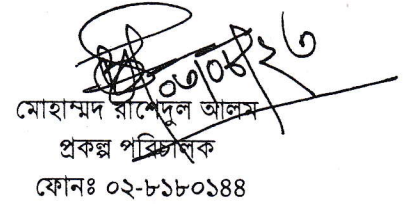 ০৩/০৮/২৩
মোহাম্মদ রাশেদুল আলম
প্রকল্প পরিচালক
ফোনঃ ০২-৮১৮০১৪৪